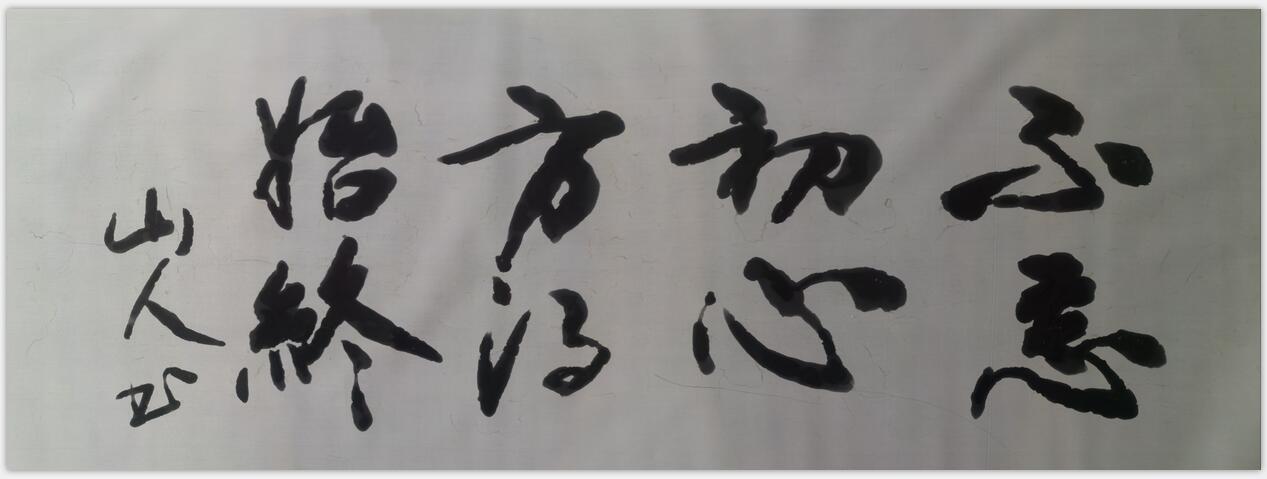 不忘
初心
方得
始終
山人书